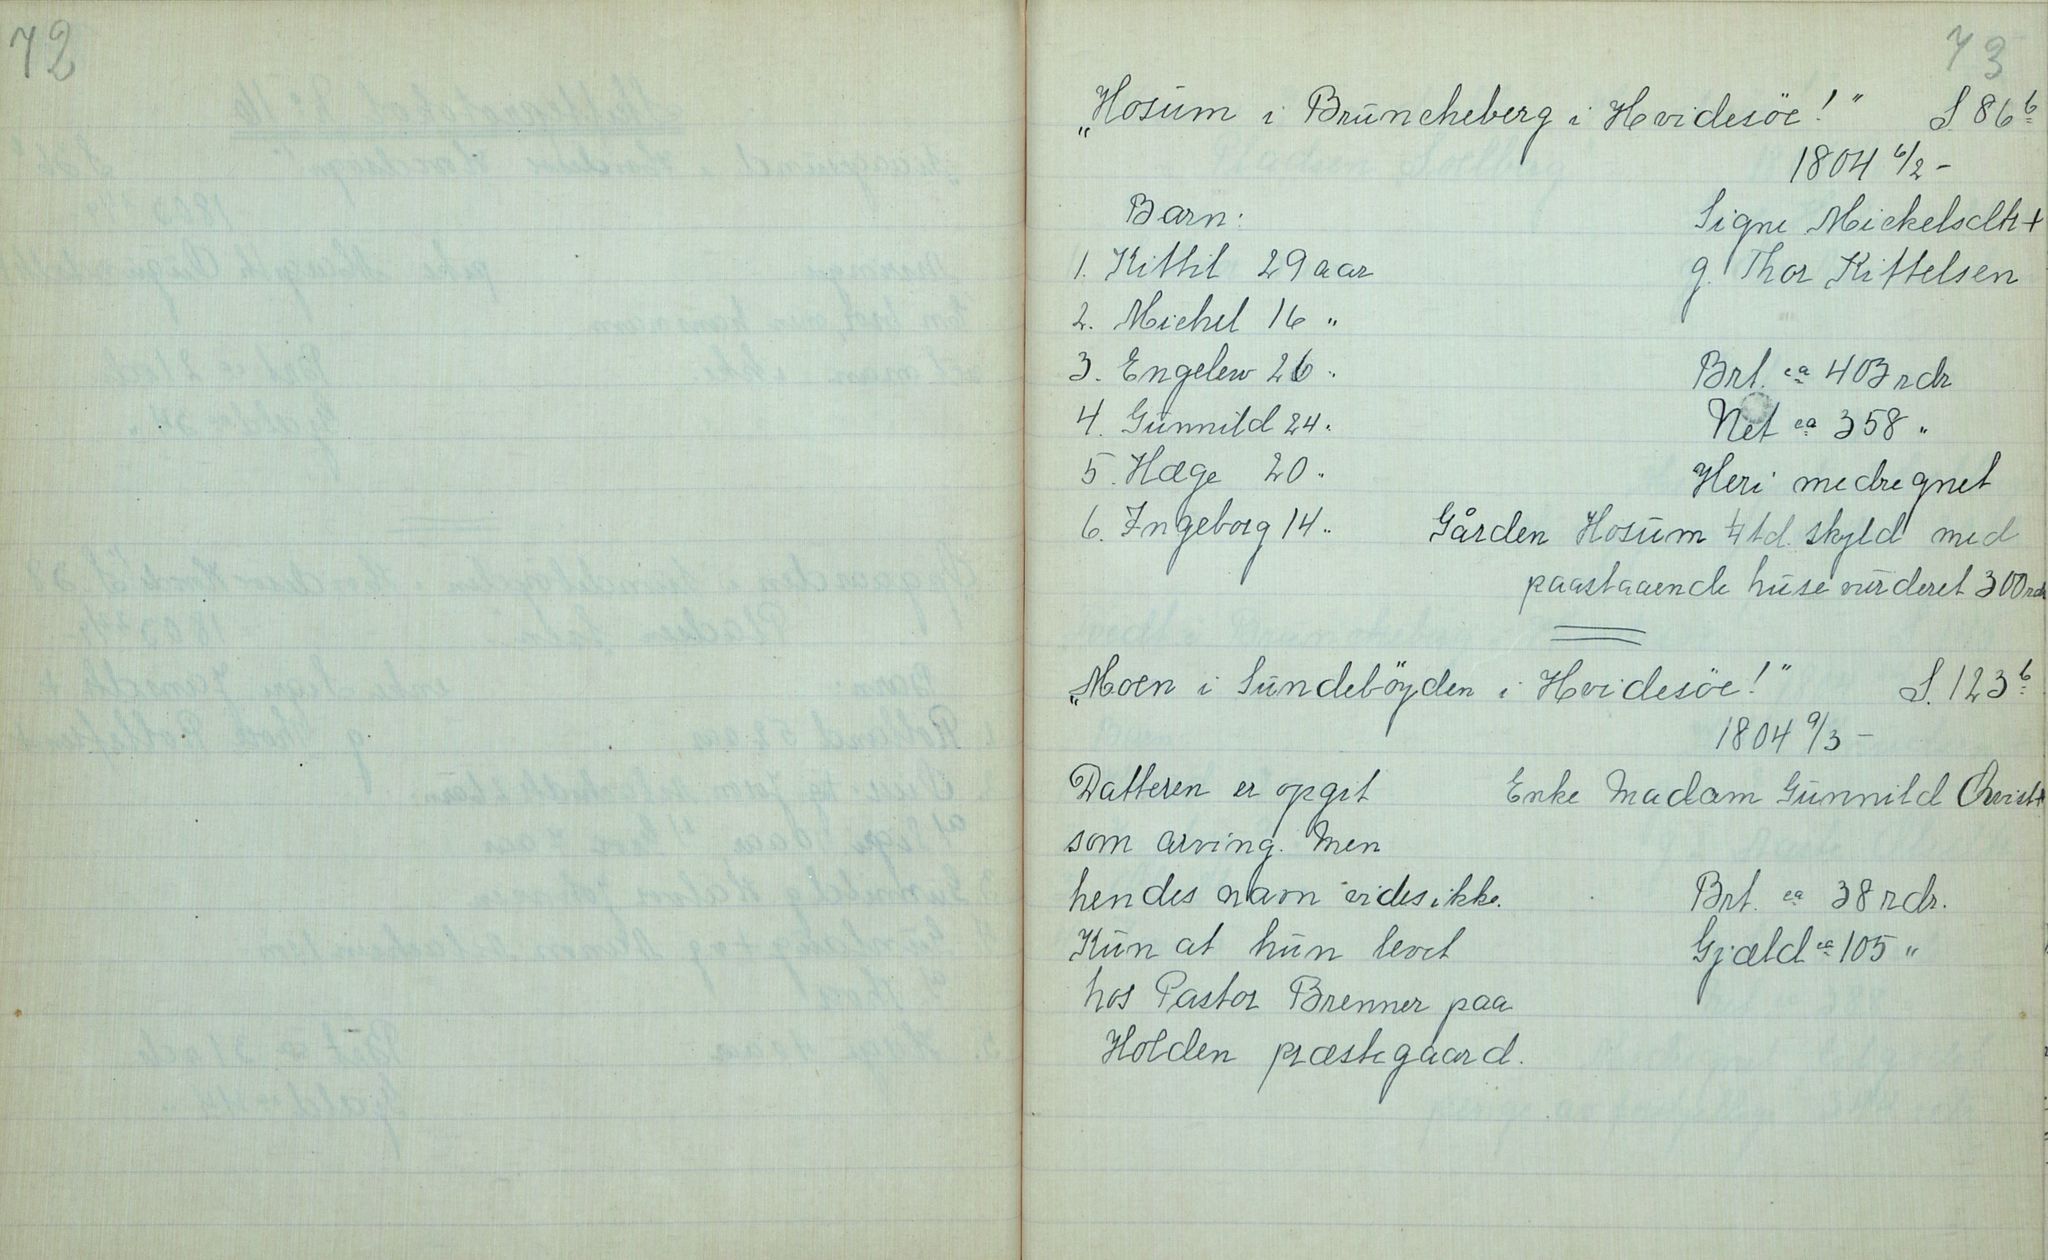 72
73
„Hosum i Bruncheberg i Hvidesöe!" S. 86 b
1804 6/2 -
Barn: Signe Mickelsdtr +
1. Kittil 29 aar g. Thor Kittelsen
2. Michel 16 "
3. Engelew 26 " Brt. ca 403 rdr
4. Gunnild 24 " Net ca 358 "
5. Hæge 20 " Heri medregnet
6. Ingeborg 14 " Gården Hosum td. skyld med
paastaaende huse vurderet 300 rdr
„Moen i Sundebøyden i Hvidesöe!" S. 123 b
1804 9/3 -
Datteren er opgit Enke Madam Gunnild Christ +
som arving. Men
hendes navn vides ikke. Brt. ca 38 rdr.
Kun at hun levet Gjæld ca 105 "
hos Pastor Brenner paa
Holden præstegaard.